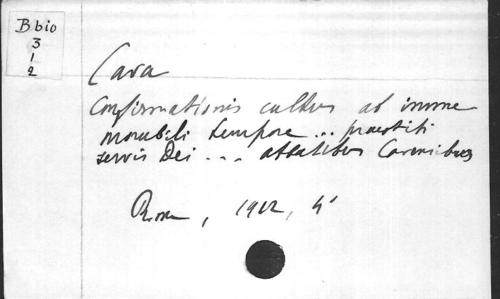 B bio
3
1
2
Cava
Confirmationis cultus ab imme
morabili tempore ... praestiti
servis Dei ... abbatibus Cavensibus
Rom, 1912, 4°